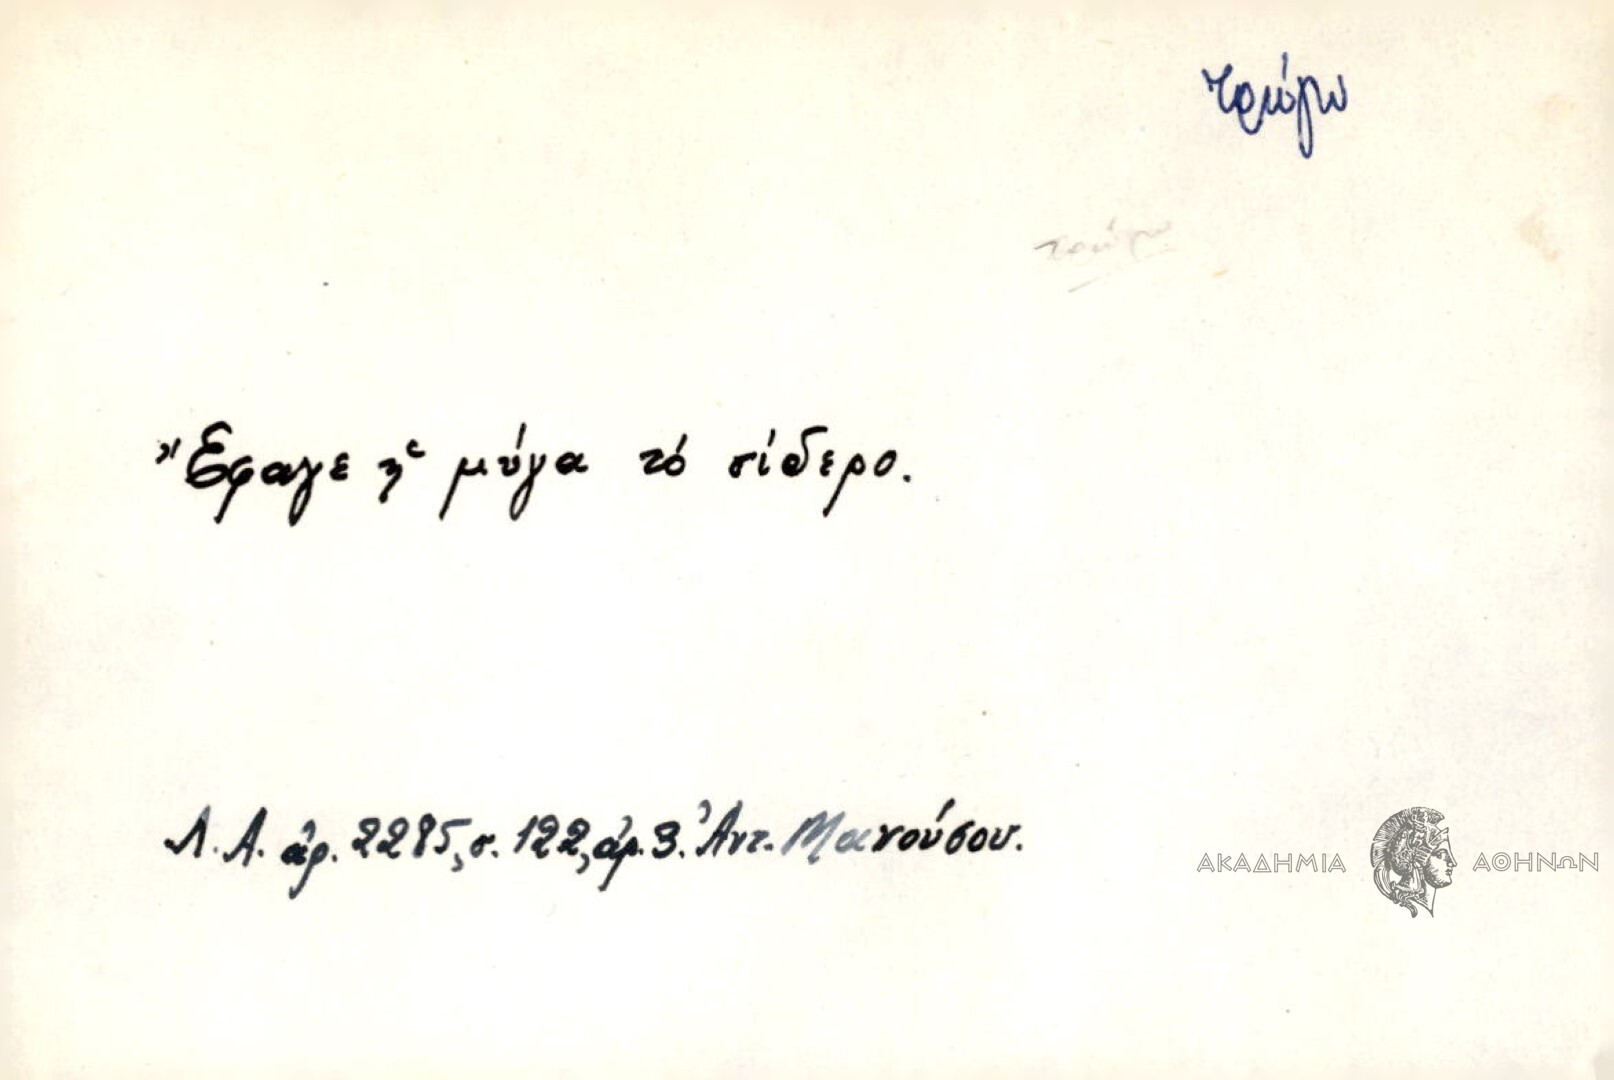 τρώγω
τρώγω
Ἔφαγε ἡ μύγα τό σίδερο.
Λ. Α. ἀρ. 2285, σ. 122, ἀρ. 3. Ἀντ. Μανούσου.
ΑΚΑΔΗΜΙΑ ΑΘΗΝΩΝ